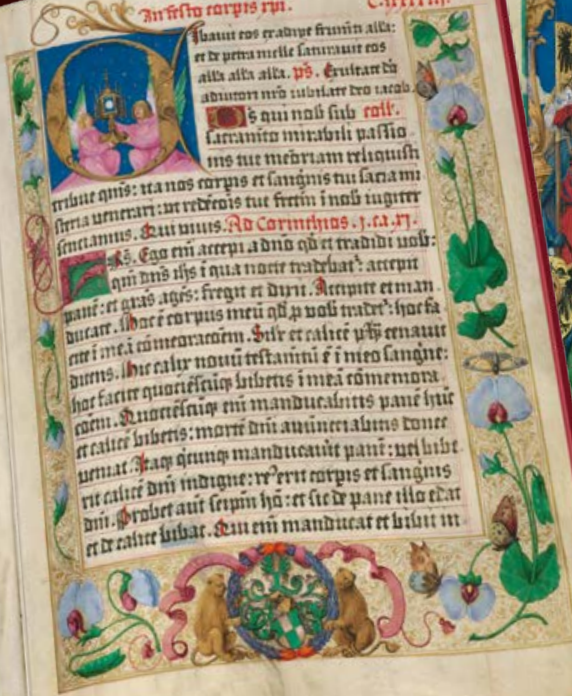 In festo corpis xpi.
Cibauit eos ex adipe frumēti alla:
et de petra melle saturauit eos
alla alla alla. ps. Exultate deo
adiutori nro iubilate deo iacob.
Ds qui nob sub coll.
sacramēto mirabili passio
nis tue memoriam reliquisti
tribue quis: ita nos corpis et sanguis tui sacra mi
steria venerari: ut redēcōis tue fructm ī nob iugiter
senciamus. Qui viuis. Ad Corinthios .j. ca. xj.
Frs. Ego em accepi a dno qd et tradidi uob:
qm dns ihs ī qua nocte tradebat: accepit
panē: et gras agēs: fregit et dixit. Accipite et man
ducate. Hoc ē corpus meū qd p uob tradet: hoc fa
cite ī meā cōmemoracōem. Silr et calicē pq cenauit
dicens. Hic calix nouū testamētū ē ī meo sanguine:
hoc facite quociēscūq bibetis ī meā cōmemora
cōem. Quociēscūq em manducabitis panē hūc
et calicē bibetis: mortē dni annūciabitis donec
ueniat. Itaq quicunq manducauit panē: uel bibe
rit calicē dni indigne: reus erit corpis et sanguis
dni. Probet aut seipm hō: et sic de pane illo edat
et de calice bibat. Qui em manducat et bibit in